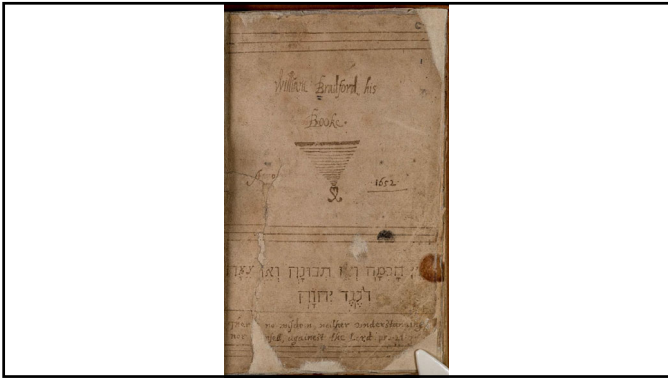 William Bradford his
Booke.
1652
חָכמָה וְאין תבונָה וְאין
לנֶגֶד יהוָה
no wisdom, neither understanding
nor against the Lord pro.